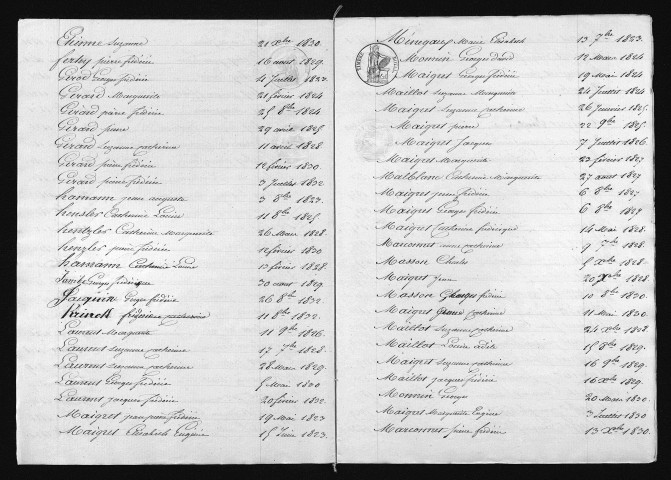 Etienne Suzanne 21 Xbre 1830.
ferley pierre frédéric 16 aout 1829.
Girard Georges frédéric 4 Juillet 1823.
Girard Marguerite 21 février 1824
Girard pierre frédéric 25 8bre 1824
Girard pierre 29 avril 1825.
Girard Suzanne catherine 11 avril 1828
Girard pierre frédéric 12 février 1830.
Girard pierre frédéric 3 Juillet 1832.
hamann jean auguste 3 8bre 1823.
hensler Catherine Louise 11 8bre 1825.
hentzler Catherine Marguerite 26 Mars 1828.
henzler pierre frédéric 12 février 1830
hamann Catherine Louise 10 février 1828.
Georges frédérique 30 aout 1829.
Jacquin Georges frédéric 26 8bre 1832.
catherine 11 8bre 1832.
Laurent Marguerite 11 9bre 1826.
Laurent Suzanne catherine 17 7bre 1828.
Laurent Suzanne catherine 28 Mars 1829.
Laurent Georges frédéric 5 Mai 1830
Laurent jacques frédéric 20 février 1832.
Maigret jean pierre frédéric 19 Mai 1823
Maigret Elisabeth Eugénie 15 Juin 1823.
Mérugaux Marie Elisabeth 13 7bre 1823.
Monnin Georges David 12 Mars 1824
Maigret Georges frédéric 19 Mai 1824
Maillot Suzanne Marguerite 24 Juillet 1824
Maigret Suzanne catherine 26 Janvier 1825.
Maigret pierre 22 9bre 1825.
Maigret Jacques 7 Juillet 1826.
Maigret Marguerite 23 février 1827
Malblanc Catherine Marguerite 27 aout 1827
Maigret pierre frédéric 6 8bre 1827.
Maigret Georges frédéric 6 8bre 1827
Maigret Catherine frédérique 14 Mai 1828.
Marconnet anne catherine 9 7bre 1828.
Mosson Charles 5 Xbre 1828.
Maigret 20 Xbre 1828.
Mosson Georges frédéric 10 8bre 1830.
Maigret catherine 11 Mai 1830.
Maillot Suzanne catherine 24 Xbre 1828.
Maillot Louise adèle 15 8bre 1829.
Maigret Suzanne catherine 16 9bre 1829.
Maillot jacques frédéric 16 Xbre 1829.
Monnin Georges 20 Mars 1830.
Maigret Marguerite Eugénie 3 Juillet 1830
Marconnet pierre frédéric 13 Xbre 1830.